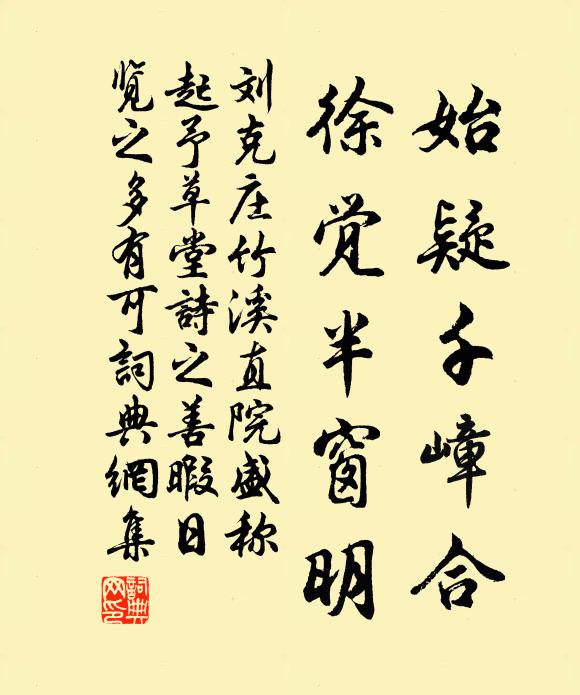 始疑千嶂合
徐觉半窗明
刘克庄竹溪直院盛称
起予草堂詩之善暇日
覽之多有可詞典網集
詞典网印